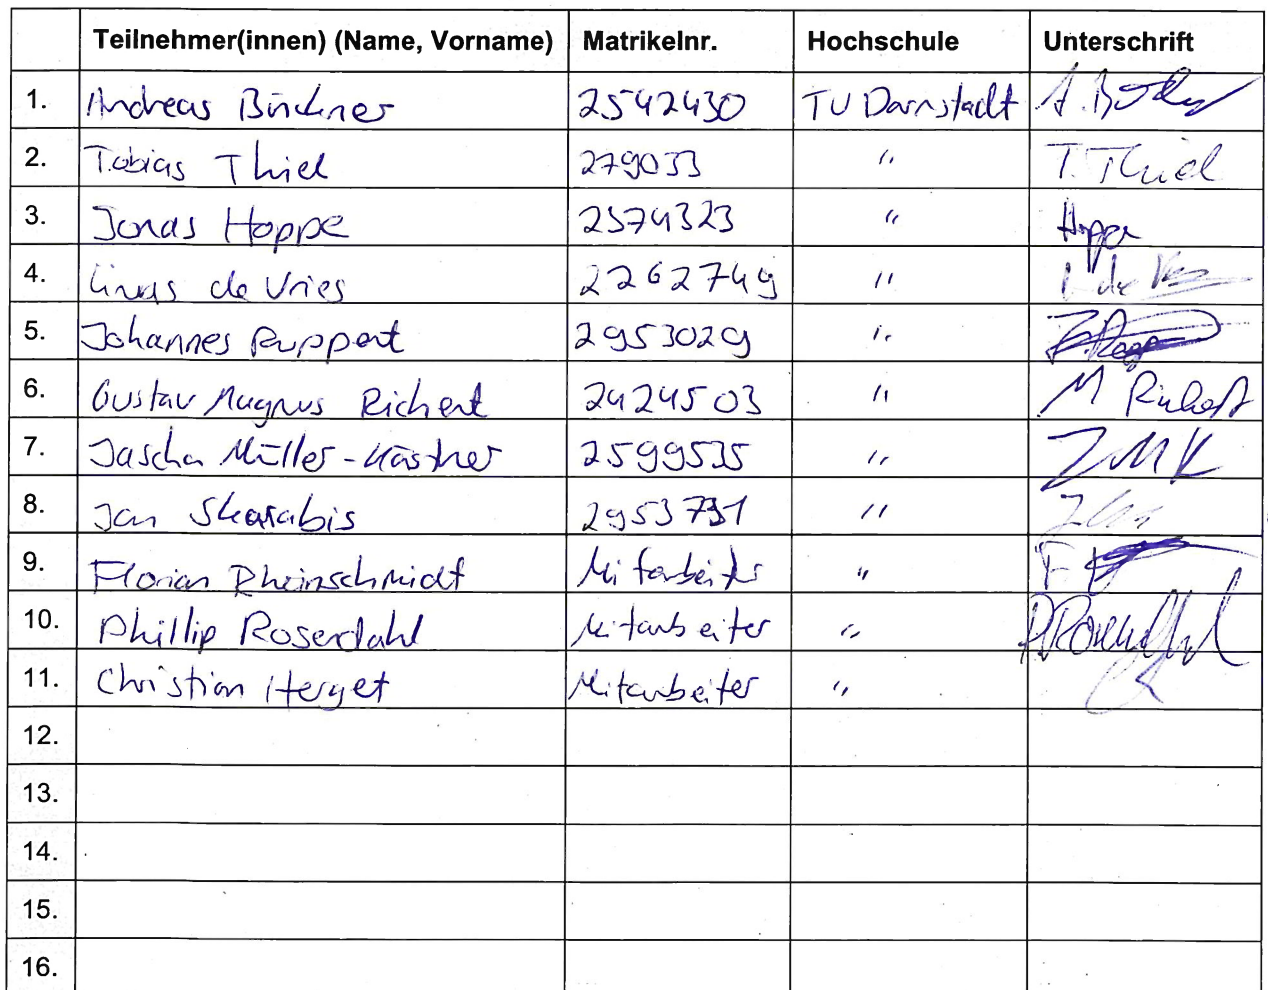 Teilnehmer(innen) (Name, Vorname) Matrikelnr. Hochschule Unterschrift
1. Andreas Büchner 2542430 TU Darmstadt
2. Tobias Thiel 279033 " T. Thiel
3. Jonas Hoppe 2574323 " Hoppe
4. Linus de Vries 2262749 "
5. Johannes Ruppert 2953029 "
6. Gustav Magnus Richert 2424503 " M Richert
7. Jascha Müller-Kästner 2599535 " JMK
8. Jan Skarabis 2953731 "
9. Florian Rheinschmidt Mitarbeiter "
10. Phillip Rosendahl Mitarbeiter " P.Rosendahl
11. Christian Herget Mitarbeiter "
12.
13.
14.
15.
16.